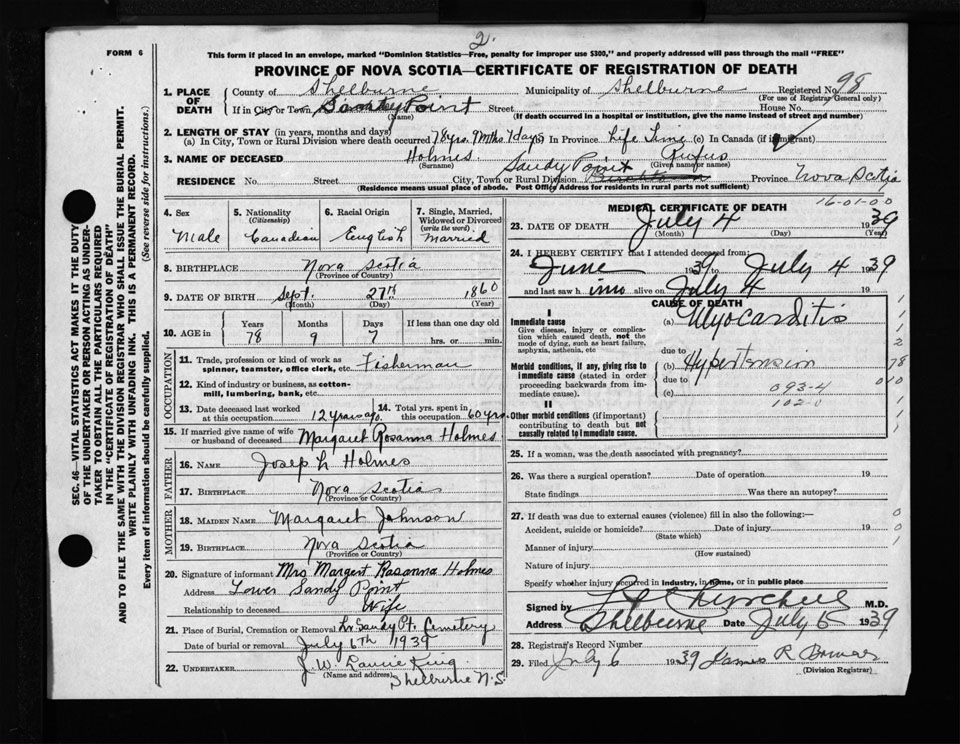 2.
FORM 6
This form if placed in an envelope, marked "Dominion Statistics—Free, penalty for improper use $300," and properly addressed will pass through the mail "FREE"
PROVINCE OF NOVA SCOTIA—CERTIFICATE OF REGISTRATION OF DEATH
1. PLACE OF DEATH County of Shelburne Municipality of Shelburne Registered No. 98
(For use of Registrar General only)
If in City or Town Sandy Point Street House No.
(Name) (If death occurred in a hospital or institution, give the name instead of street and number)
2. LENGTH OF STAY (in years, months and days)
(a) In City, Town or Rural Division where death occurred 78 yrs. 9 Mths 7 days (b) In Province Life Time (c) In Canada (if immigrant)
3. NAME OF DECEASED Holmes Rufus
(Surname) (Given name or names)
RESIDENCE No. Street City, Town or Rural Division Sandy Point Province Nova Scotia
(Residence means usual place of abode. Post Office Address for residents in rural parts not sufficient)
4. Sex Male
5. Nationality (Citizenship) Canadian
6. Racial Origin English
7. Single, Married, Widowed or Divorced (write the word) Married
8. BIRTHPLACE Nova Scotia
(Province or Country)
9. DATE OF BIRTH Sept. 27th 1860
(Month) (Day) (Year)
10. AGE in Years Months Days If less than one day old
78 9 7 hrs. or min.
OCCUPATION
11. Trade, profession or kind of work as spinner, teamster, office clerk, etc. Fisherman
12. Kind of industry or business, as cotton-mill, lumbering, bank, etc.
13. Date deceased last worked at this occupation 12 years ago.
14. Total yrs. spent in this occupation 60 yrs.
15. If married give name of wife or husband of deceased Margaret Rosanna Holmes
FATHER
16. NAME Joseph Holmes
17. BIRTHPLACE Nova Scotia
(Province or Country)
MOTHER
18. MAIDEN NAME Margaret Johnson
19. BIRTHPLACE Nova Scotia
(Province or Country)
20. Signature of informant Mrs Margert Rosanna Holmes
Address Lower Sandy Point
Relationship to deceased Wife
21. Place of Burial, Cremation or Removal Lr Sandy Pt. Cemetery
Date of burial or removal July 6th 1939
22. UNDERTAKER J. W. Laurie King
(Name and address) Shelburne N.S
MEDICAL CERTIFICATE OF DEATH
16-01-00
23. DATE OF DEATH July 4 1939
(Month) (Day) (Year)
24. I HEREBY CERTIFY that I attended deceased from
June 1939 to July 4 1939
and last saw him alive on July 4 19
CAUSE OF DEATH
I
Immediate cause (a) Myocarditis
Give disease, injury or complication which caused death, not the mode of dying, such as heart failure, asphyxia, asthenia, etc
due to
Morbid conditions, if any, giving rise to immediate cause (stated in order proceeding backwards from immediate cause). (b) Hypertension
due to
(c) 093-4
102-0
II
Other morbid conditions (if important) contributing to death but not causally related to immediate cause.
1
1
2
78
010
1
1
25. If a woman, was the death associated with pregnancy?
26. Was there a surgical operation? Date of operation 19
State findings Was there an autopsy?
27. If death was due to external causes (violence) fill in also the following:— 0
Accident, suicide or homicide? Date of injury 19 0
(State which)
Manner of injury 1
(How sustained)
Nature of injury
Specify whether injury occurred in industry, in home, or in public place
Signed by Churchill M.D.
Address Shelburne Date July 5 1939
28. Registrar's Record Number
29. Filed July 6 1939 James R Bower
(Division Registrar)
SEC. 46—VITAL STATISTICS ACT MAKES IT THE DUTY
OF THE UNDERTAKER OR PERSON ACTING AS UNDER-
TAKER TO OBTAIN ALL THE PARTICULARS REQUIRED
IN THE "CERTIFICATE OF REGISTRATION OF DEATH"
AND TO FILE THE SAME WITH THE DIVISION REGISTRAR WHO SHALL ISSUE THE BURIAL PERMIT.
WRITE PLAINLY WITH UNFADING INK. THIS IS A PERMANENT RECORD.
Every item of information should be carefully supplied. (See reverse side for instructions.)